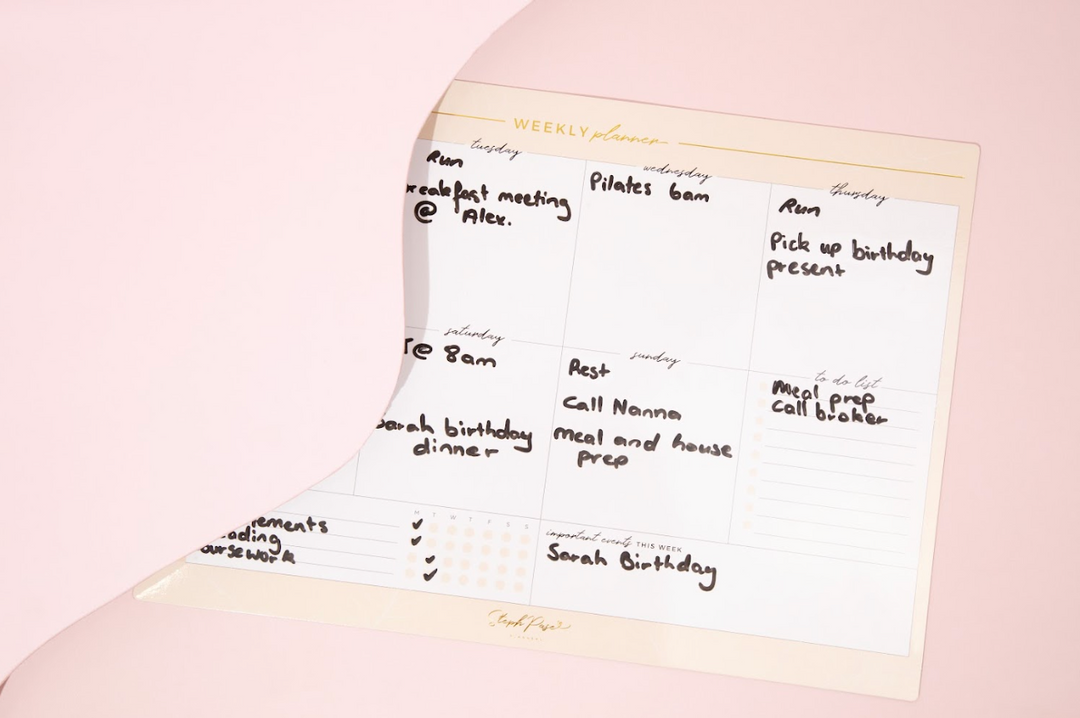 WEEKLY planner
tuesday
Run
reakfast meeting
@ Alex.
wednesday
Pilates 6am
thursday
Run
Pick up birthday
present
saturday
@ 8am
arah birthday
dinner
sunday
Rest
Call Nanna
meal and house
prep
to do list
Meal prep
Call broker
ements
ading
oursework
M T W T F S S
important events THIS WEEK
Sarah Birthday
Steph Pase